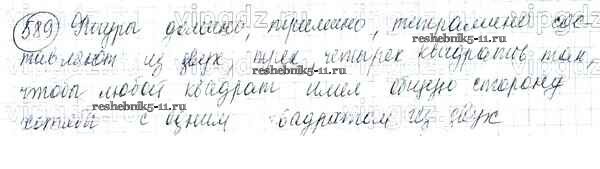 589 Фигуры домино, тримино, тетрамино сос
тавляют из двух, трех четырех квадратов так,
чтобы любой квадрат имел общую сторону
хотябы с одним квадратом из двух
reshebnik5-11.ru
reshebnik5-11.ru
reshebnik5-11.ru